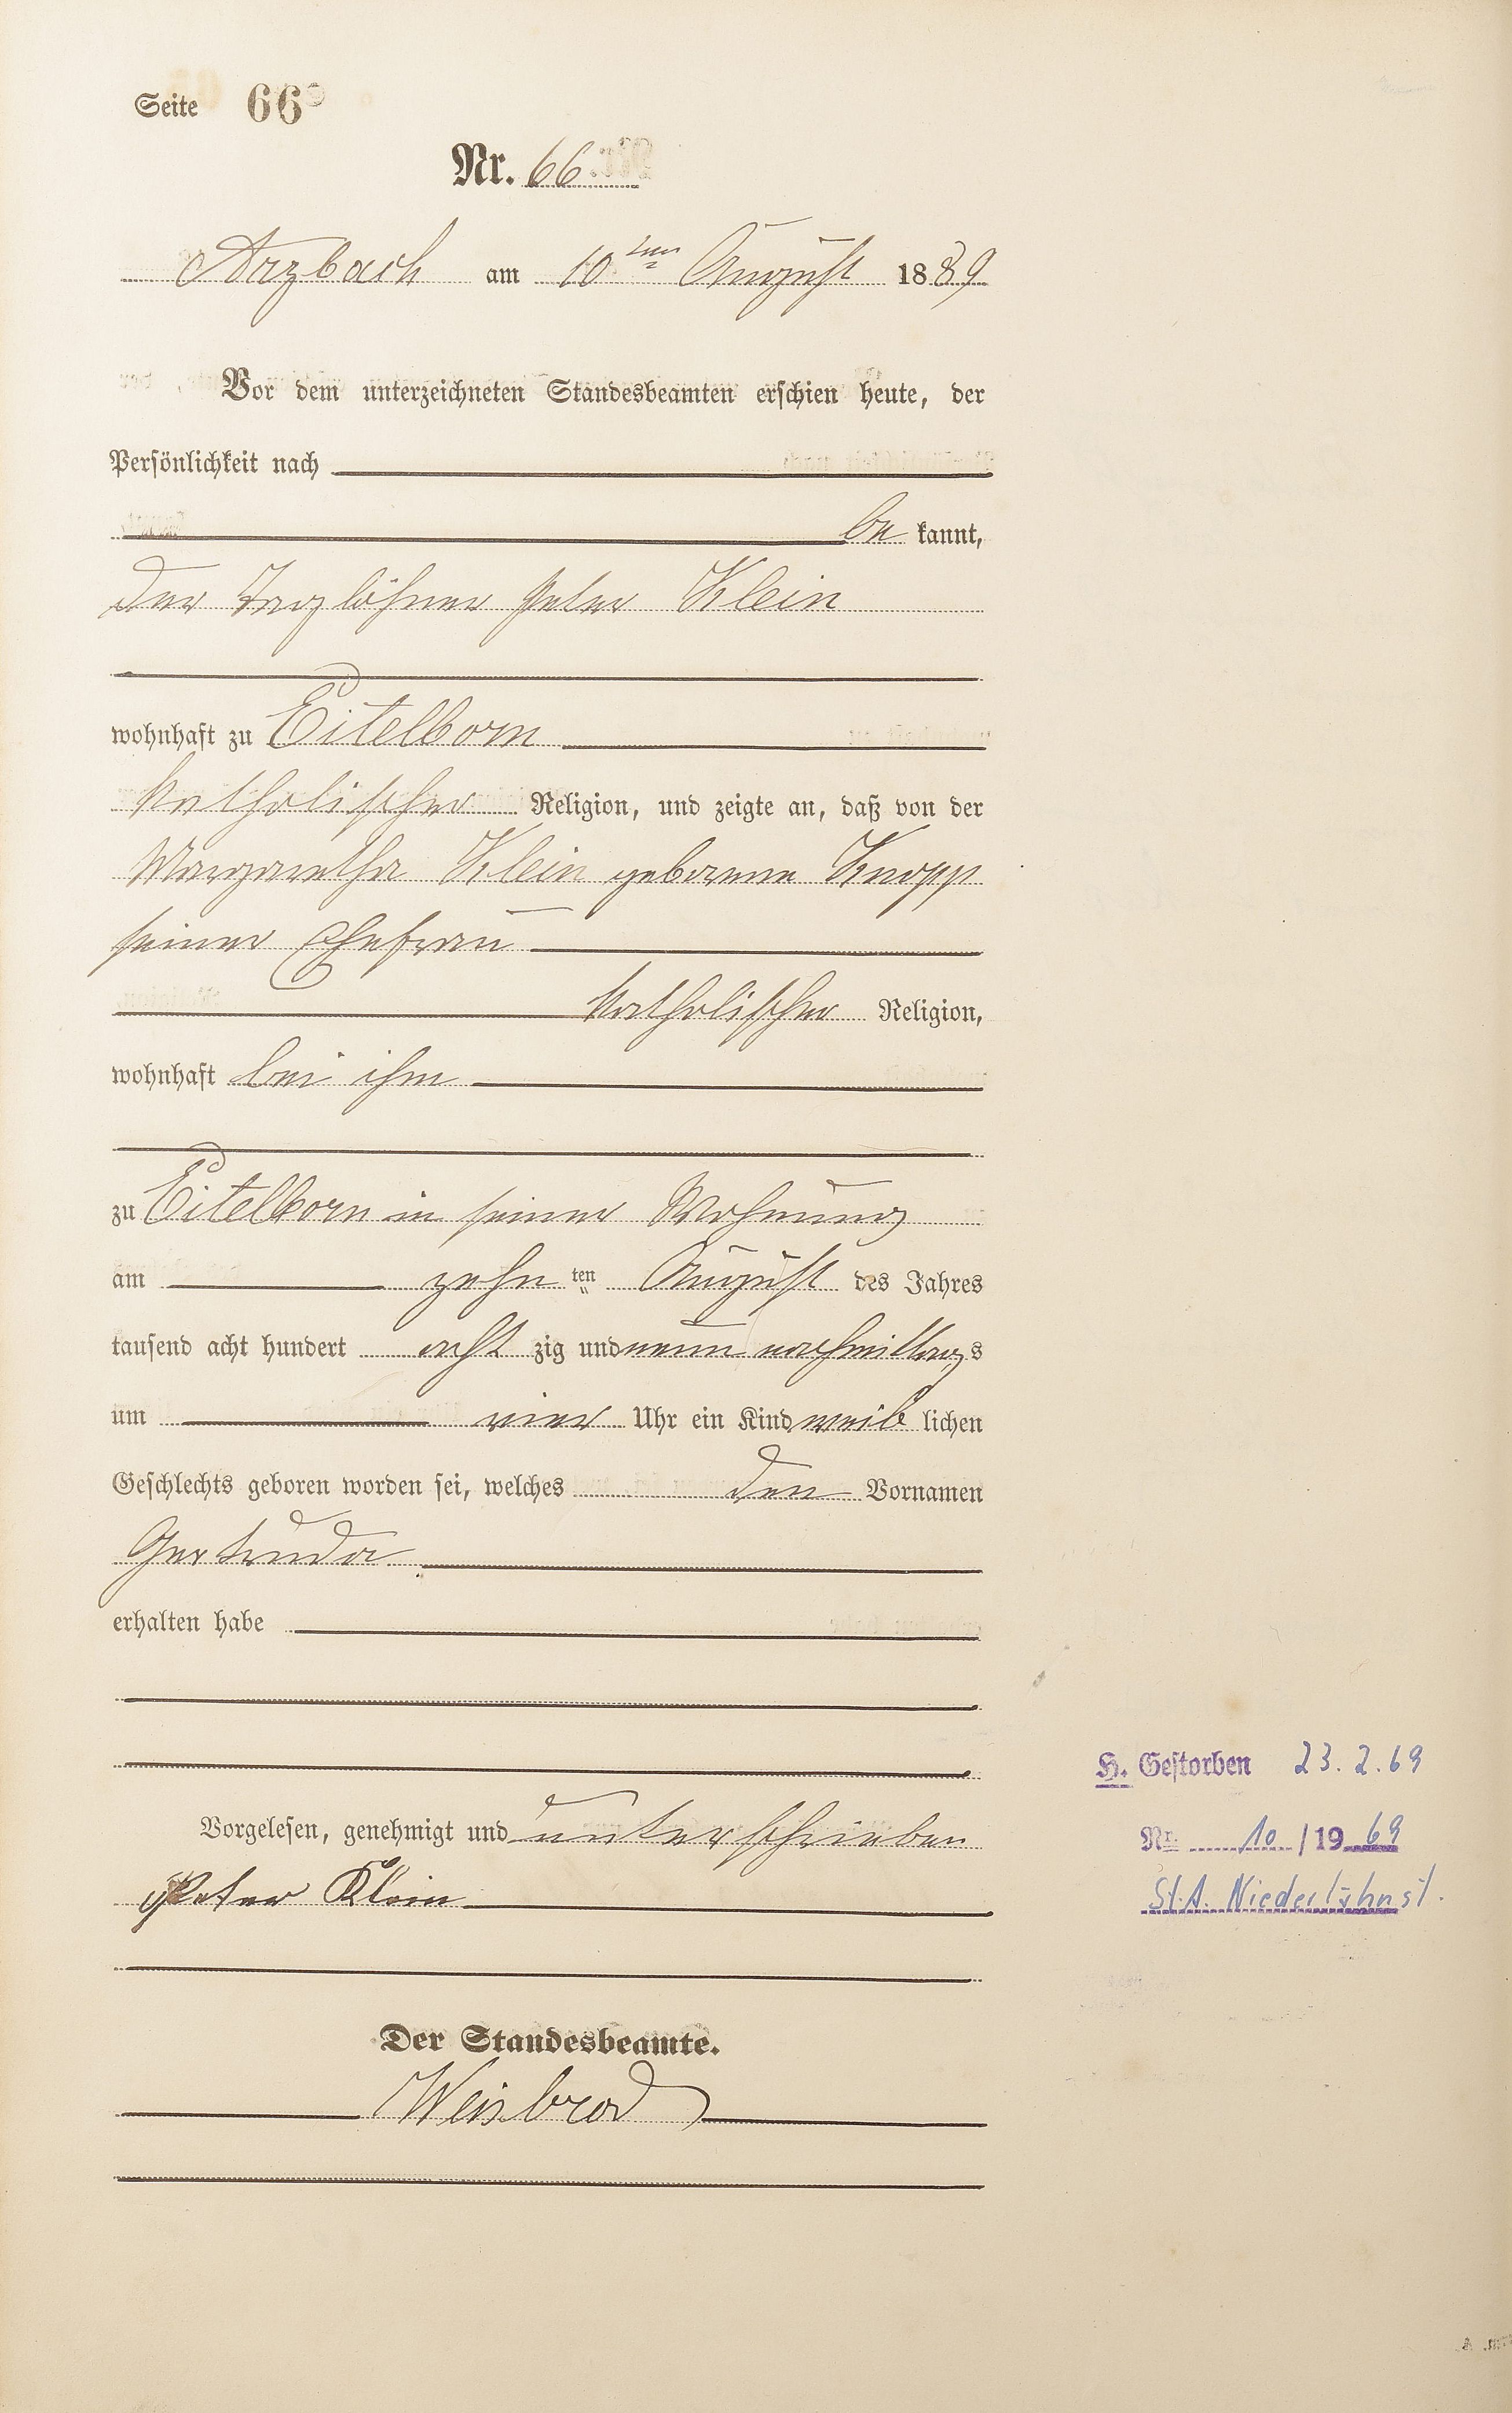 Seite 66
Nr. 66
Arzbach am 10ten August 1889
Vor dem unterzeichneten Standesbeamten erschien heute, der
Persönlichkeit nach
be kannt,
der Taglöhner Peter Klein
wohnhaft zu Eitelborn
katholischer Religion, und zeigte an, daß von der
Margaretha Klein geborene Knopp
seiner Ehefrau
katholischer Religion,
wohnhaft bei ihm
zu Eitelborn in seiner Wohnung
am zehn ten August des Jahres
tausend acht hundert acht zig und neun nachmittags
um vier Uhr ein Kind weib lichen
Geschlechts geboren worden sei, welches den Vornamen
Gertruda
erhalten habe
Vorgelesen, genehmigt und unterschrieben
Peter Klein
Der Standesbeamte.
Weisbrod
H. Gestorben 23.2.69
Nr. 10/1969
St.A. Niederlahnst.